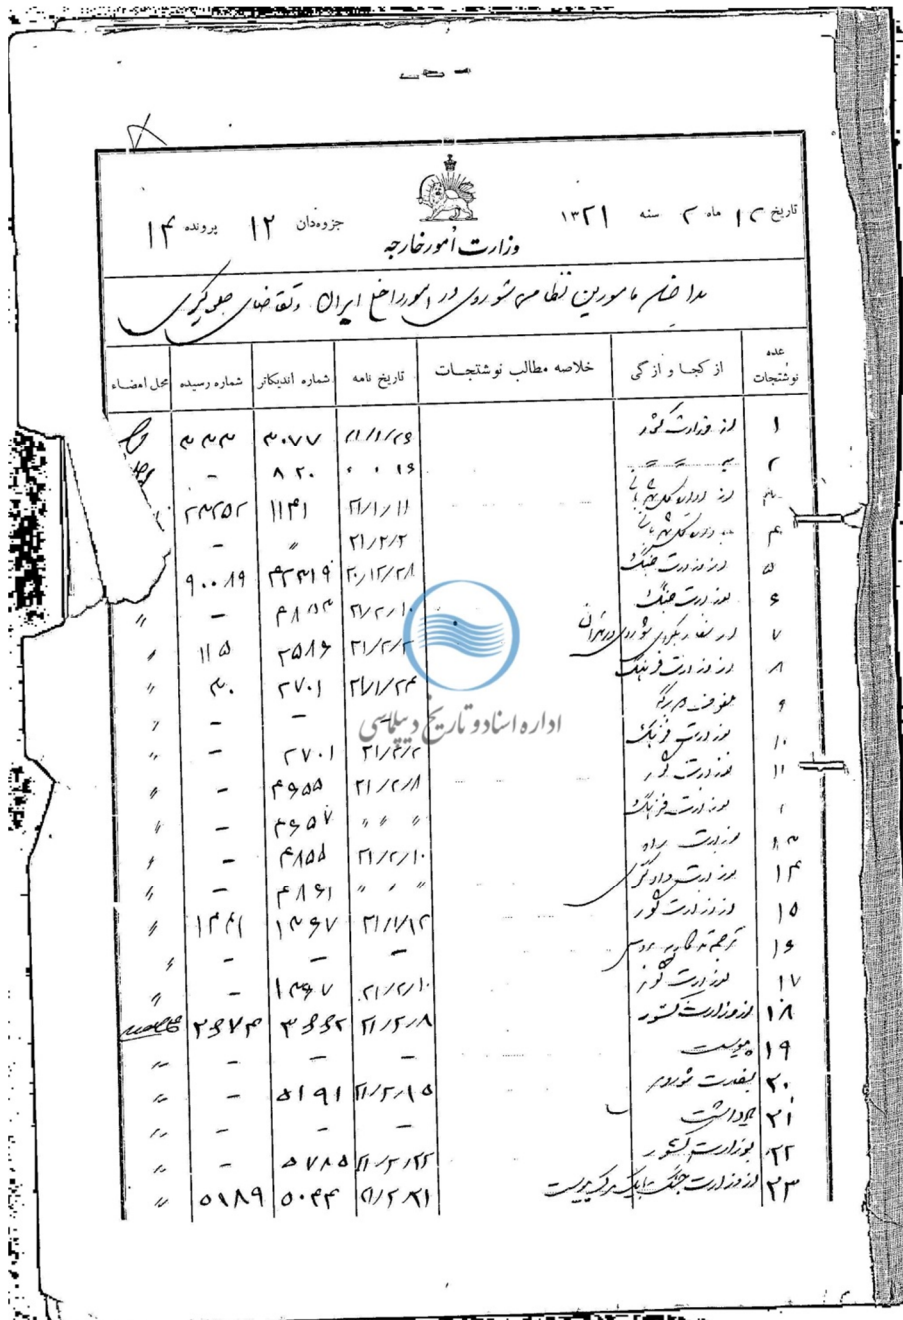 تاریخ ۱۲ ماه ۲ سنه ۱۳۲۱ جزوه‌دان ۱۲ پرونده ۱۴
وزارت اُمور خارجه
مداخله مامورین نظامی شوروی در امور داخلی ایران و تقاضای جلوگیری
عده نوشتجات از کجا و از کی خلاصه مطالب نوشتجات تاریخ نامه شماره اندیکاتر شماره رسیده محل امضاء
۱ از وزارت کشور ۳۰۷۷ ۳۳۳
۲ ۸۲۰ -
۳ از اداره کل شهربانی ۲۱/۱/۱۱ ۱۱۴۱
۴ به اداره کل شهربانی ۲۱/۲/۲ " -
۵ از وزارت جنگ ۲۰/۱۲/۲۸ ۹۰۰۸۹
۶ بوزارت جنگ ۲۱/۲/۱۰ - "
۷ از سفارت کبرای شوروی در تهران ۲۵۸۶ ۱۱۵ "
۸ از وزارت فرهنگ ۲۷۰۱ ۳۰ "
۹ - - "
۱۰ بوزارت فرهنگ ۲۱/۲/۲ ۲۷۰۱ - "
۱۱ بوزارت کشور ۲۱/۲/۸ ۴۶۵۵ - "
بوزارت فرهنگ " " " ۴۶۵۷ - "
۱۳ بوزارت راه ۲۱/۲/۱۰ ۴۸۵۵ - "
۱۴ بوزارت دادگستری " " " ۴۸۶۱ - "
۱۵ از وزارت کشور ۲۱/۱/۱۲ ۱۳۶۷ ۱۳۴۱ "
۱۶ - - - "
۱۷ بوزارت کشور ۲۱/۲/۱۰ ۱۳۶۷ - "
۱۸ از وزارت کشور ۲۱/۲/۸ ۳۶۶۲ ۲۶۷۴
۱۹ پیوست - - - "
۲۰ بسفارت شوروی ۲۱/۲/۱۵ ۵۱۹۱ - "
۲۱ یادداشت - - - "
۲۲ بوزارت کشور ۲۱/۲/۲۲ ۵۷۸۵ - "
۲۳ از وزارت جنگ با یک برگ پیوست ۲۱/۲/۲۱ ۵۰۴۴ ۵۱۸۹ "
اداره اسناد و تاریخ دیپلماسی